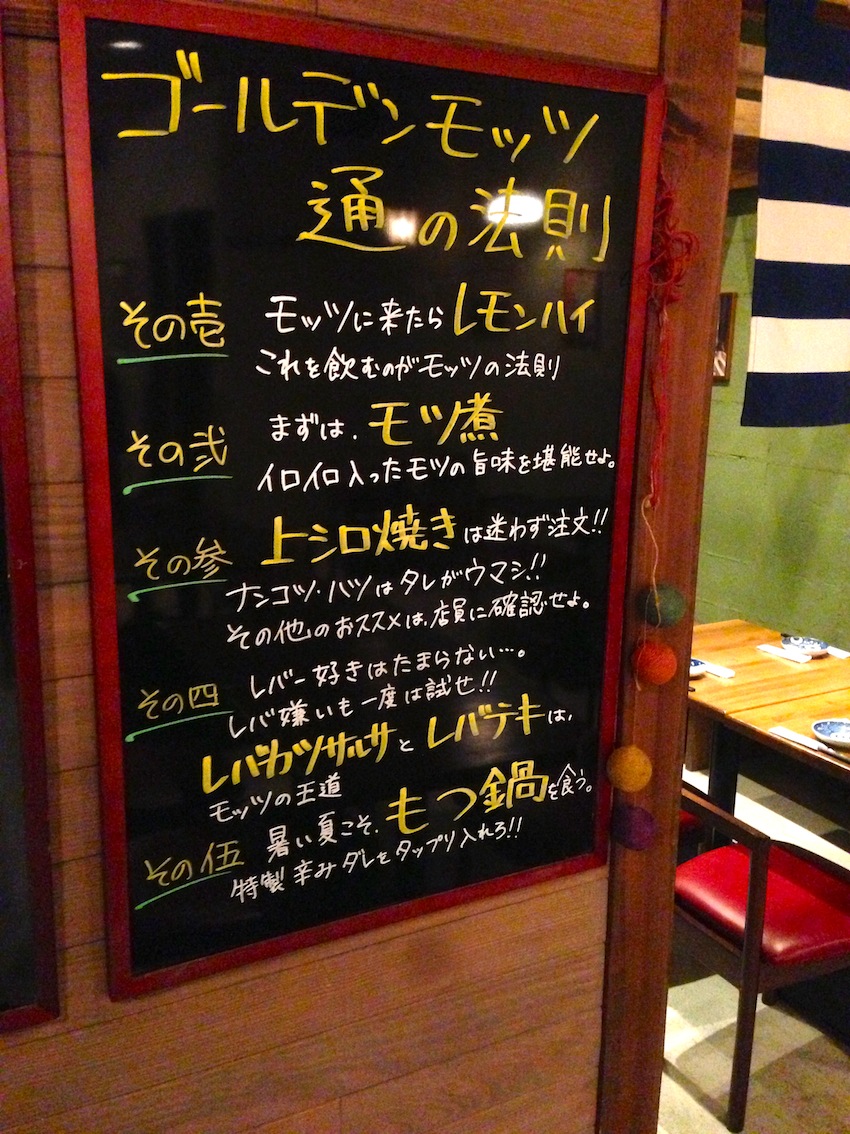 ゴールデンモッツ
通の法則
その壱 モッツに来たらレモンハイ
これを飲むのがモッツの法則
その弐 まずは、モツ煮
イロイロ入ったモツの旨味を堪能せよ。
その参 上シロ焼きは迷わず注文!!
ナンコツ・ハツはタレがウマシ!!
その他のおススメは、店員に確認せよ。
その四 レバー好きはたまらない…。
レバ嫌いも一度は試せ!!
レバカツサルサとレバテキは、
モッツの王道
その伍 暑い夏こそ、もつ鍋を食う。
特製辛みダレをタップリ入れろ!!